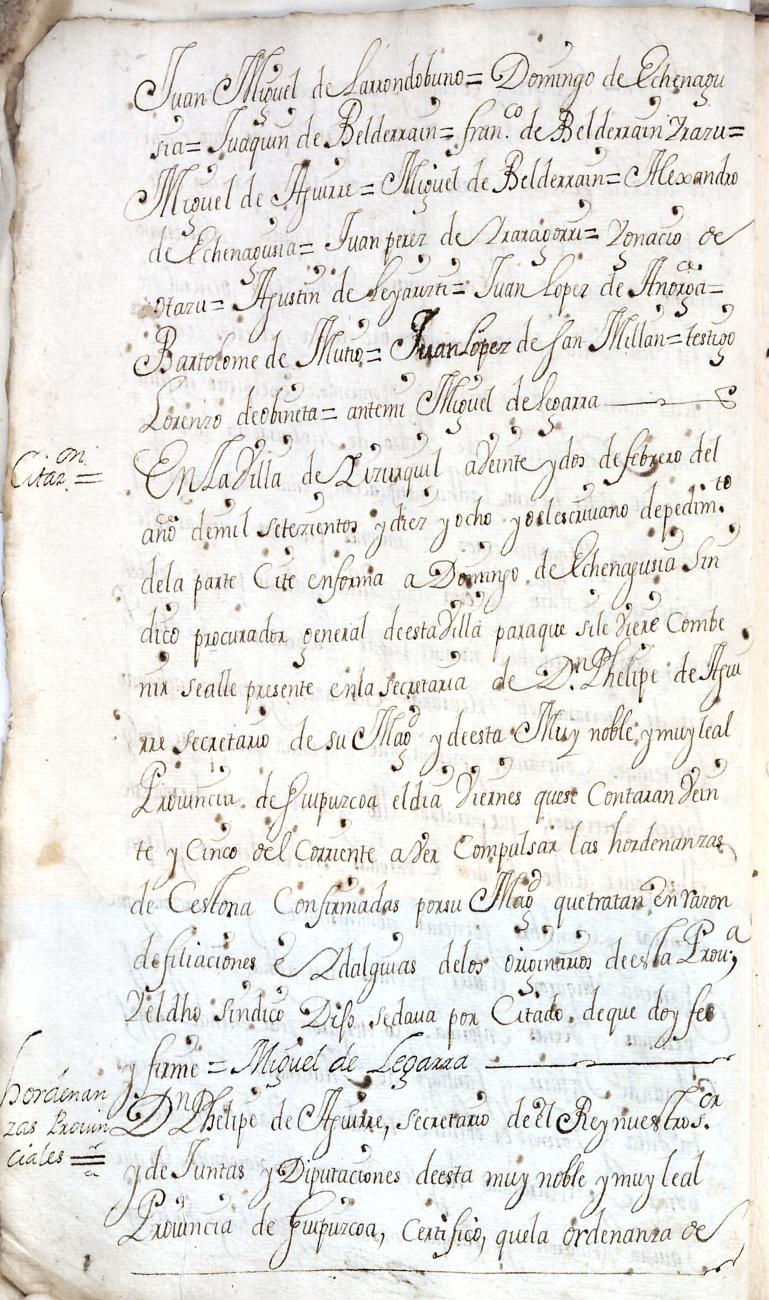 Juan Miguel de Larrondobuno= Domingo de Echenagu
sia= Juaquin de Belderrain= fran.co de Belderrain Yzazu=
Miguel de Aguirre= Miguel de Belderrain= Alexandro
de Echenagusia= Juan perez de Yraragorri= Ygnacio de
otazu= Agustin de Leyaurti= Juan Lopez de
Bartolome de Mutio= Juan Lopez de San Millan= testigo
Lorenzo deobineta= antemi Miguel de Legarra
Citaz.on =
En La Villa de Lizurquil aVeinte ydos defebrero del
año demil setezientos ydiez yocho yo elescriuano depedim.to
dela parte Cite enforma a Domingo de Echenagusia Sin
dico procurador general deesta Villa paraque sile Viere Combe
nir sealle presente enla secretaria de D.n Phelipe de Agui
rre secretario de su Magd ydeesta Muy noble ymuyleal
Prouincia de Guipuzcoa eldia Viernes quese Contaran Vein
te y Cinco del Corriente aVer Compulsar las hordenanzas
de Cestona Confirmadas porsu Magd quetratan En razon
defiliaciones è Ydalguias delos originarios deesta Prou.a
Yeldho sindico Dijo sedaua por Citado dequedoyfee
y firme = Miguel de Legarra
hordenan
zas Prouin
ciales =
Dn Phelipe de Aguirre, secretario de el Rey nuestro s.or
yde Juntas y Diputaciones deesta muy noble ymuyleal
Prouincia de Guipuzcoa, Certifico, quela ordenanza de